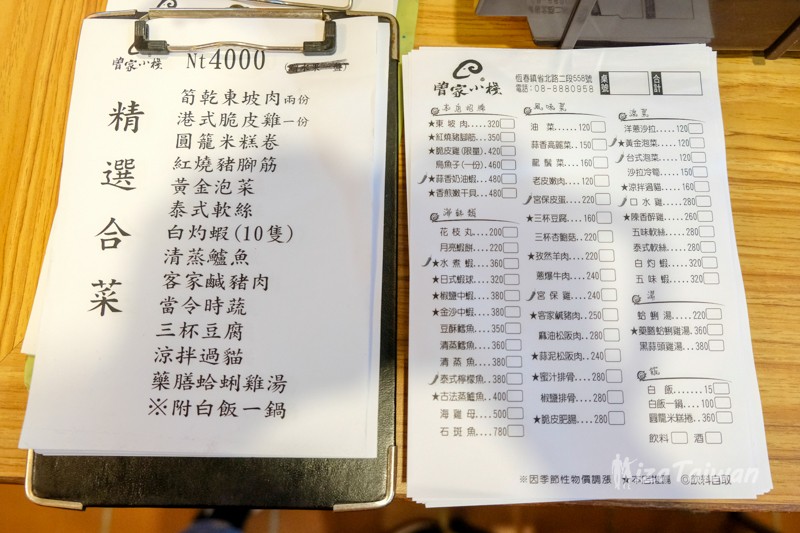 曾家小棧 Nt4000
精選合菜
筍乾東坡肉兩份
港式脆皮雞一份
圓籠米糕卷
紅燒豬腳筋
黃金泡菜
泰式軟絲
白灼蝦(10隻)
清蒸鱸魚
客家鹹豬肉
當令時蔬
三杯豆腐
涼拌過貓
藥膳蛤蜊雞湯
※附白飯一鍋
曾家小棧
恆春鎮省北路二段558號
電話:08-8880958
桌號
合計
本店招牌
★東坡肉.....320
★紅燒豬腳筋...350
★脆皮雞(限量)..420
烏魚子(一份).460
★蒜香奶油蝦..480
★香煎嫩干貝..480
海鮮類
花枝丸....200
月亮蝦餅...220
★水煮蝦....360
★日式蝦球...320
★椒鹽中蝦...380
★金沙中蝦...380
豆酥鱈魚...350
清蒸鱈魚...360
清蒸魚....380
泰式檸檬魚..380
★古法蒸鱸魚..400
海雞母....500
石斑魚....780
風味菜
油菜......120
蒜香高麗菜..150
龍鬚菜....160
老皮嫩肉...120
宮保皮蛋...220
★三杯豆腐....160
三杯杏鮑菇..220
★孜然羊肉...220
蔥爆牛肉...240
宮保雞....240
★客家鹹豬肉..250
麻油松阪肉..280
★蒜泥松阪肉..240
★蜜汁排骨...280
椒鹽排骨...280
★脆皮肥腸...280
涼菜
洋蔥沙拉...120
★黃金泡菜....120
台式泡菜...120
沙拉冷筍...150
★涼拌過貓...160
口水雞....210
★陳香醉雞...260
五味軟絲...280
泰式軟絲...280
白灼蝦....320
五味蝦....320
湯
蛤蜊湯....220
★藥膳蛤蜊雞湯.350
黑蒜頭雞湯..380
飯
白飯......15
白飯一鍋...100
圓籠米糕捲..360
飲料
酒
※因季節性物價調漲 ★本店推薦 @飲料自取
MizaTaiwan